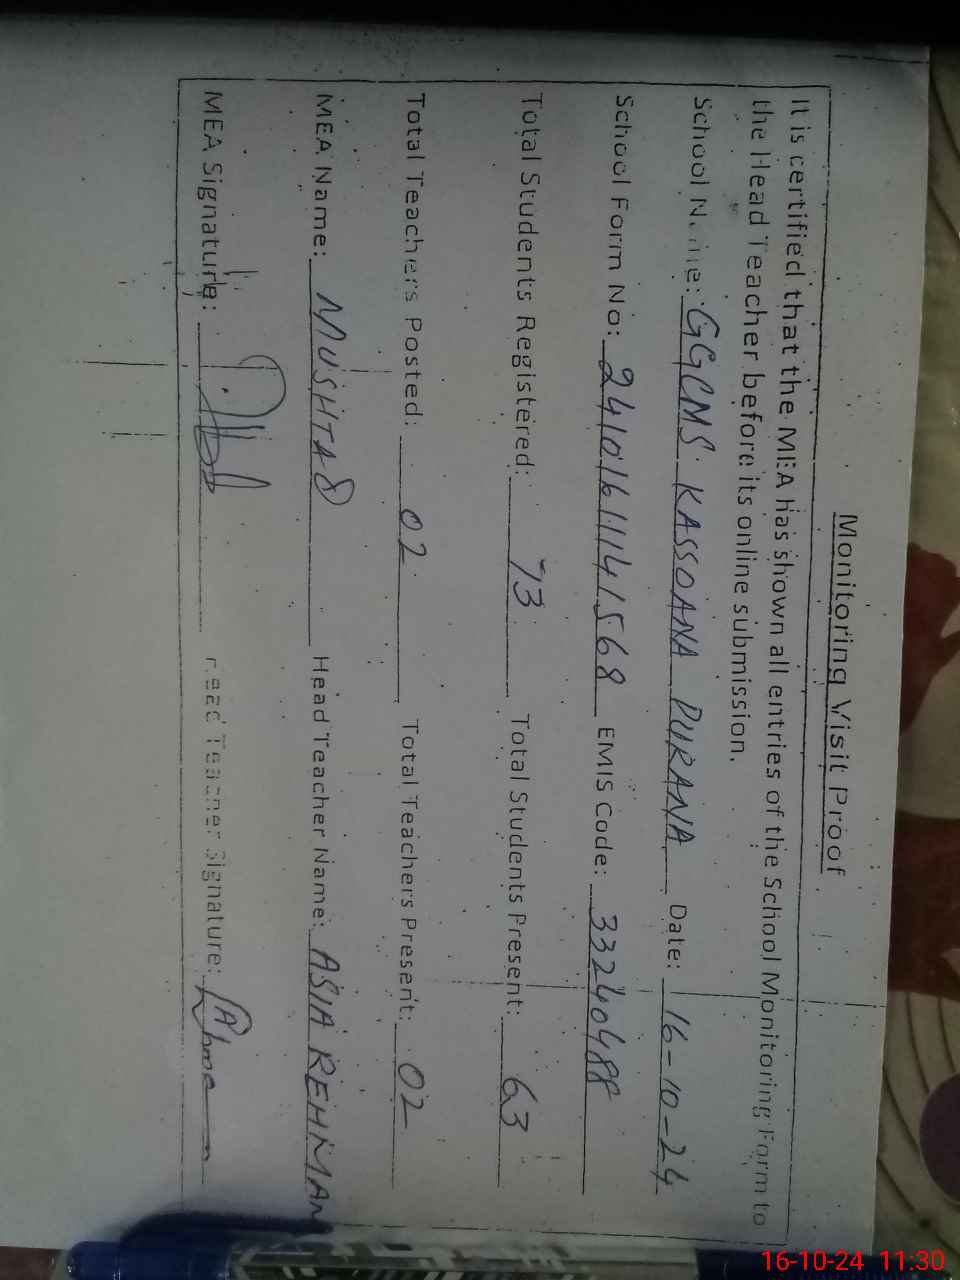 Monitoring Visit Proof
It is certified that the MEA has shown all entries of the School Monitoring Form to
the Head Teacher before its online submission.
School Name: GGCMS KASSOANA PURANA Date: 16-10-24
School Form No: 24101611141568 EMIS Code: 33240488
Total Students Registered: 73 Total Students Present: 63
Total Teachers Posted: 02 Total Teachers Present: 02
MEA Name: MUSHTAQ Head Teacher Name: ASIA REHMAN
MEA Signature: Head Teacher Signature:
16-10-24 11:30